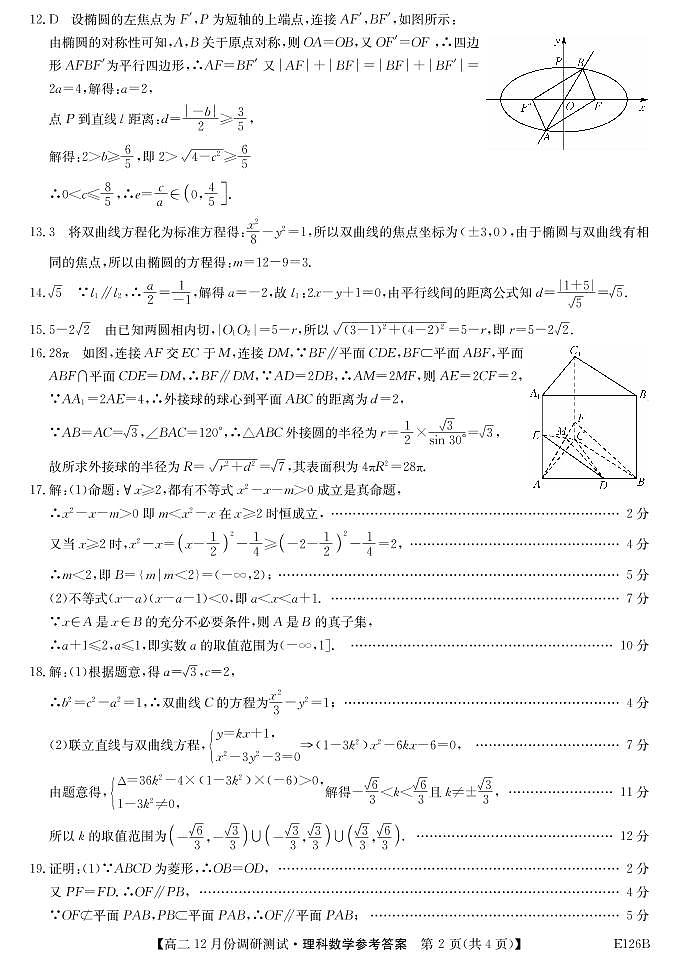 12. D　设椭圆的左焦点为 F′,P 为短轴的上端点,连接 AF′,BF′,如图所示:
由椭圆的对称性可知,A,B 关于原点对称,则 OA=OB,又 OF′=OF ,∴四边
形 AFBF′为平行四边形,∴AF=BF′ 又|AF|+|BF|=|BF|+|BF′|=
2a=4,解得:a=2,
点 P 到直线 l 距离:d=|-b|/2≥3/5,
解得:2>b≥6/5,即 2>√(4-c²)≥6/5
∴0<c≤8/5,∴e=c/a∈(0,4/5].
y
P
B
F′
O
F
x
A
13. 3　将双曲线方程化为标准方程得:x²/8-y²=1,所以双曲线的焦点坐标为(±3,0),由于椭圆与双曲线有相
同的焦点,所以由椭圆的方程得:m=12-9=3.
14. √5　∵l₁∥l₂,∴a/2=1/-1,解得 a=-2,故 l₁:2x-y+1=0,由平行线间的距离公式知 d=|1+5|/√5=√5.
15. 5-2√2　由已知两圆相内切,|O₁O₂|=5-r,所以√((3-1)²+(4-2)²)=5-r,即 r=5-2√2.
16. 28π　如图,连接 AF 交 EC 于 M,连接 DM,∵BF∥平面 CDE,BF⊂平面 ABF,平面
ABF∩平面 CDE=DM,∴BF∥DM,∵AD=2DB,∴AM=2MF,则 AE=2CF=2,
∵AA₁=2AE=4,∴外接球的球心到平面 ABC 的距离为 d=2,
∵AB=AC=√3,∠BAC=120°,∴△ABC 外接圆的半径为 r=1/2×√3/sin 30°=√3,
故所求外接球的半径为 R=√(r²+d²)=√7,其表面积为 4πR²=28π.
C₁
A₁
B
F
E
M
C
A
D
B
17. 解:(1)命题:∀x≥2,都有不等式 x²-x-m>0 成立是真命题,
∴x²-x-m>0 即 m<x²-x 在 x≥2 时恒成立, …… 2 分
又当 x≥2 时,x²-x=(x-1/2)²-1/4≥(-2-1/2)²-1/4=2, …… 4 分
∴m<2,即 B={m|m<2}=(-∞,2); …… 5 分
(2)不等式(x-a)(x-a-1)<0,即 a<x<a+1. …… 7 分
∵x∈A 是 x∈B 的充分不必要条件,则 A 是 B 的真子集,
∴a+1≤2,a≤1,即实数 a 的取值范围为(-∞,1]. …… 10 分
18. 解:(1)根据题意,得 a=√3,c=2,
∴b²=c²-a²=1,∴双曲线 C 的方程为x²/3-y²=1; …… 4 分
(2)联立直线与双曲线方程,{y=kx+1, x²-3y²-3=0⇒(1-3k²)x²-6kx-6=0, …… 7 分
由题意得,{Δ=36k²-4×(1-3k²)×(-6)>0, 1-3k²≠0,解得-√6/3<k<√6/3且 k≠±√3/3, …… 11 分
所以 k 的取值范围为(-√6/3,-√3/3)∪(-√3/3,√3/3)∪(√3/3,√6/3). …… 12 分
19. 证明:(1)∵ABCD 为菱形,∴OB=OD, …… 2 分
又 PF=FD.∴OF∥PB, …… 4 分
∵OF⊄平面 PAB,PB⊂平面 PAB,∴OF∥平面 PAB; …… 5 分
【高二 12 月份调研测试·理科数学参考答案　第 2 页(共 4 页)】　E126B